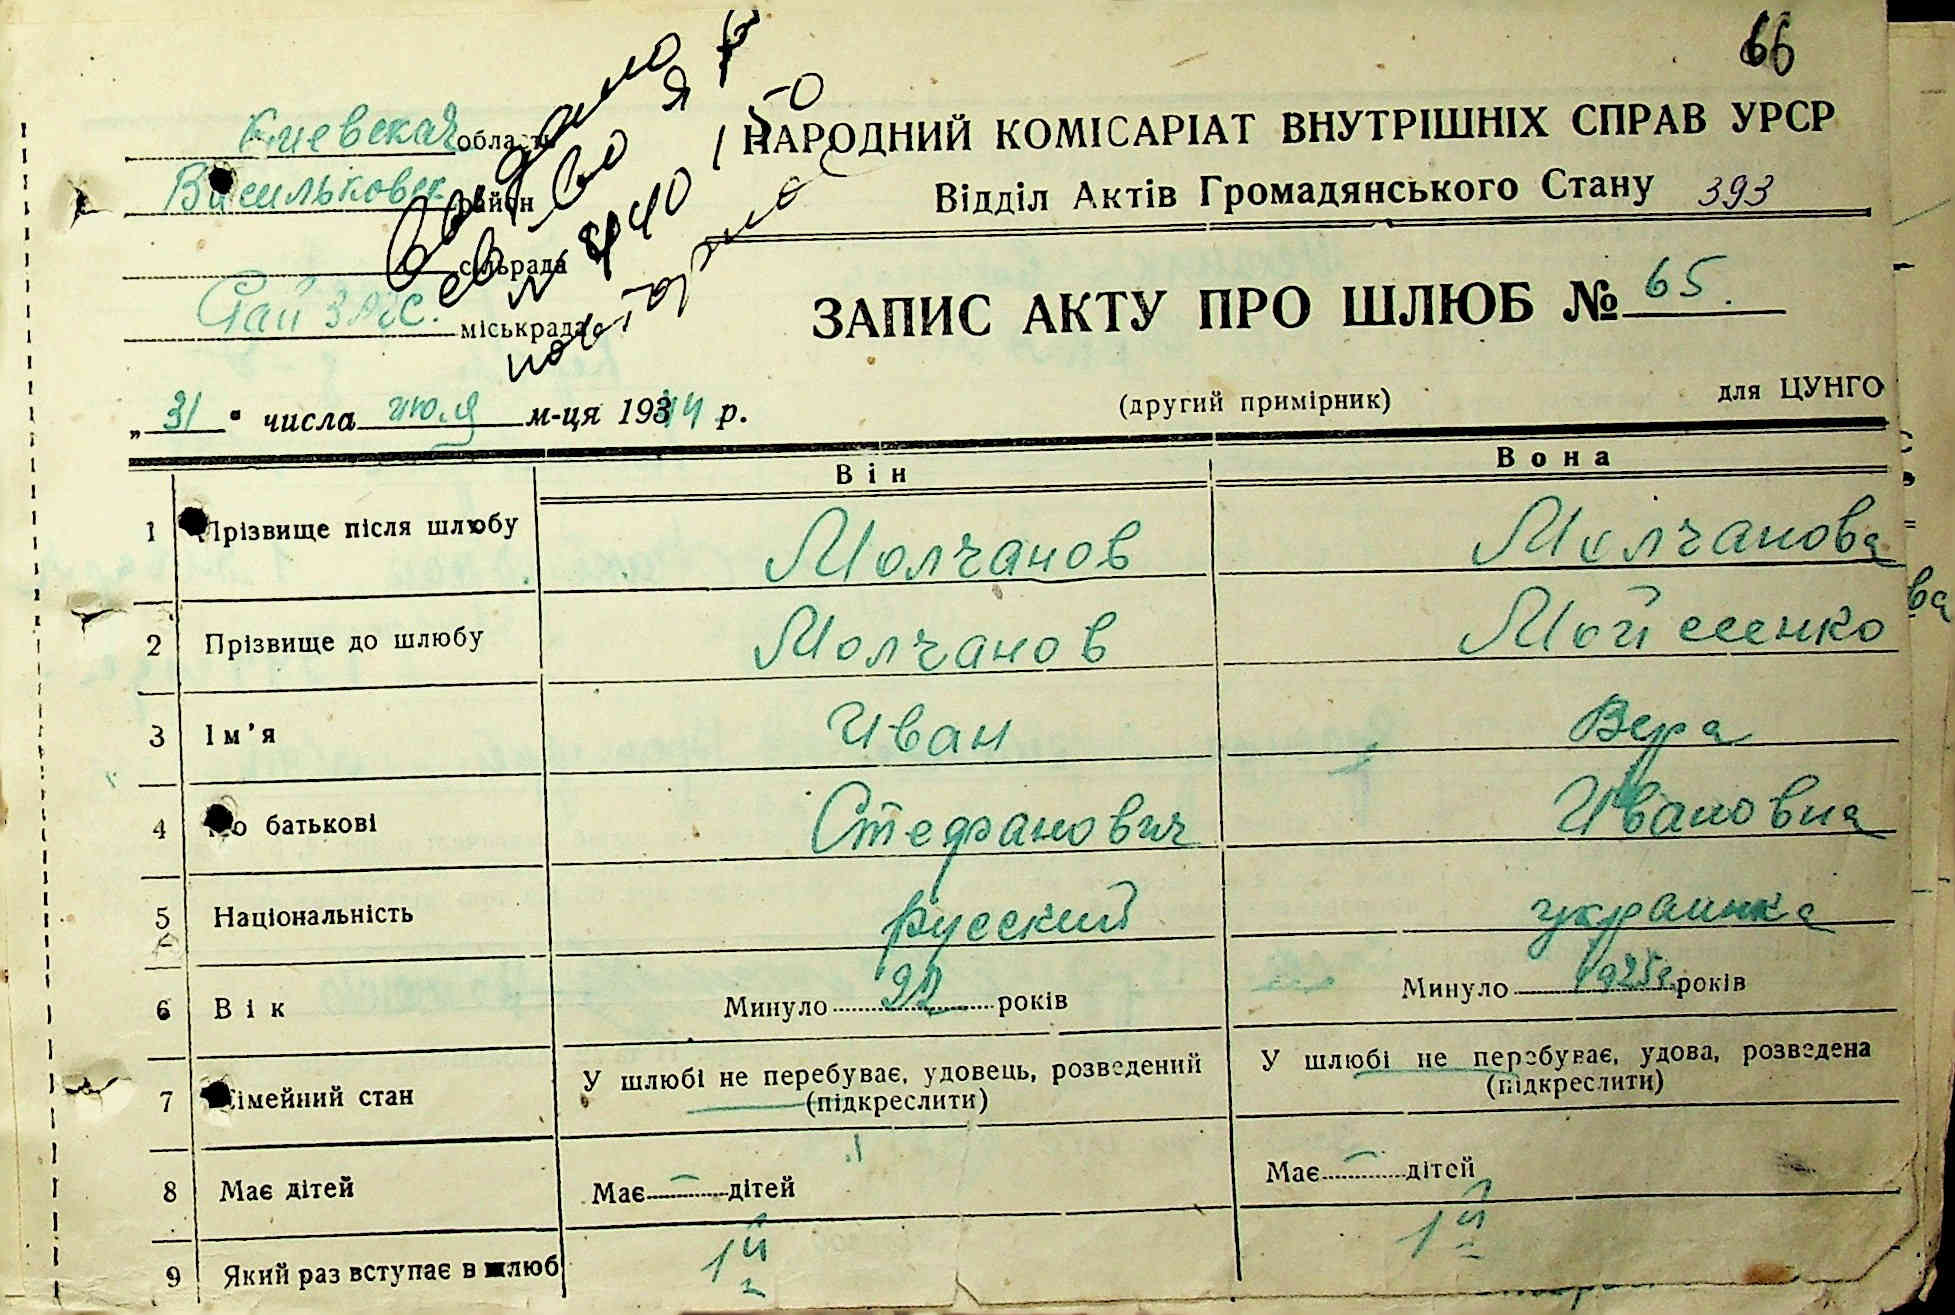 66
Киевская область
Васильковск. район
сільрада
РайЗАГС. міськрада
Выдано
св-во
№
повторное
НАРОДНИЙ КОМІСАРІАТ ВНУТРІШНІХ СПРАВ УРСР
Відділ Актів Громадянського Стану 393
ЗАПИС АКТУ ПРО ШЛЮБ № 65.
„31" числа июля м-ця 1944 р.
(другий примірник)
для ЦУНГО
Він Вона
1 Прізвище після шлюбу Молчанов Молчанова
2 Прізвище до шлюбу Молчанов Мойсеенко
3 Ім'я Иван Вера
4 По батькові Стефанович Ивановна
5 Національність русский украинка
6 Вік Минуло 22 років Минуло 1925г. років
7 Сімейний стан У шлюбі не перебуває, удовець, розведений (підкреслити) У шлюбі не перебуває, удова, розведена (підкреслити)
8 Має дітей Має - дітей Має - дітей
9 Який раз вступає в шлюб 1й 1й
ва